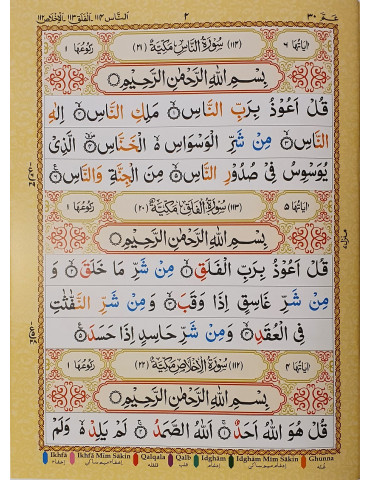 عم ٣٠ ٢ الناس ١١٤ - الفلق ١١٣ - الاخلاص ١١٢
اٰيَاتُهَا ٦ (١١٤) سُوْرَةُ النَّاسِ مَكِّيَّةٌ (٢١) رُكُوْعُهَا ١
بِسْمِ اللّٰهِ الرَّحْمٰنِ الرَّحِيْمِ
قُلْ اَعُوْذُ بِرَبِّ النَّاسِ ۙ﴿۱﴾ مَلِكِ النَّاسِ ۙ﴿۲﴾ اِلٰهِ
النَّاسِ ۙ﴿۳﴾ مِنْ شَرِّ الْوَسْوَاسِ ۙ۬ الْخَنَّاسِ ۪ۙ﴿۴﴾ الَّذِيْ
يُوَسْوِسُ فِيْ صُدُوْرِ النَّاسِ ۙ﴿۵﴾ مِنَ الْجِنَّةِ وَالنَّاسِ ﴿۶﴾
اٰيَاتُهَا ٥ (١١٣) سُوْرَةُ الْفَلَقِ مَكِّيَّةٌ (٢٠) رُكُوْعُهَا ١
بِسْمِ اللّٰهِ الرَّحْمٰنِ الرَّحِيْمِ
قُلْ اَعُوْذُ بِرَبِّ الْفَلَقِ ۙ﴿۱﴾ مِنْ شَرِّ مَا خَلَقَ ۙ﴿۲﴾ وَ
مِنْ شَرِّ غَاسِقٍ اِذَا وَقَبَ ۙ﴿۳﴾ وَمِنْ شَرِّ النَّفّٰثٰتِ
فِي الْعُقَدِ ۙ﴿۴﴾ وَمِنْ شَرِّ حَاسِدٍ اِذَا حَسَدَ ﴿۵﴾
اٰيَاتُهَا ٤ (١١٢) سُوْرَةُ الْاِخْلَاصِ مَكِّيَّةٌ (٢٢) رُكُوْعُهَا ١
بِسْمِ اللّٰهِ الرَّحْمٰنِ الرَّحِيْمِ
قُلْ هُوَ اللّٰهُ اَحَدٌ ۚ﴿۱﴾ اَللّٰهُ الصَّمَدُ ۚ﴿۲﴾ لَمْ يَلِدْ ۙ۬ وَلَمْ
Ikhfa Ikhfa Mim Sakin Qalqala Qalb Idgham Idgham Mim Sakin Ghunna